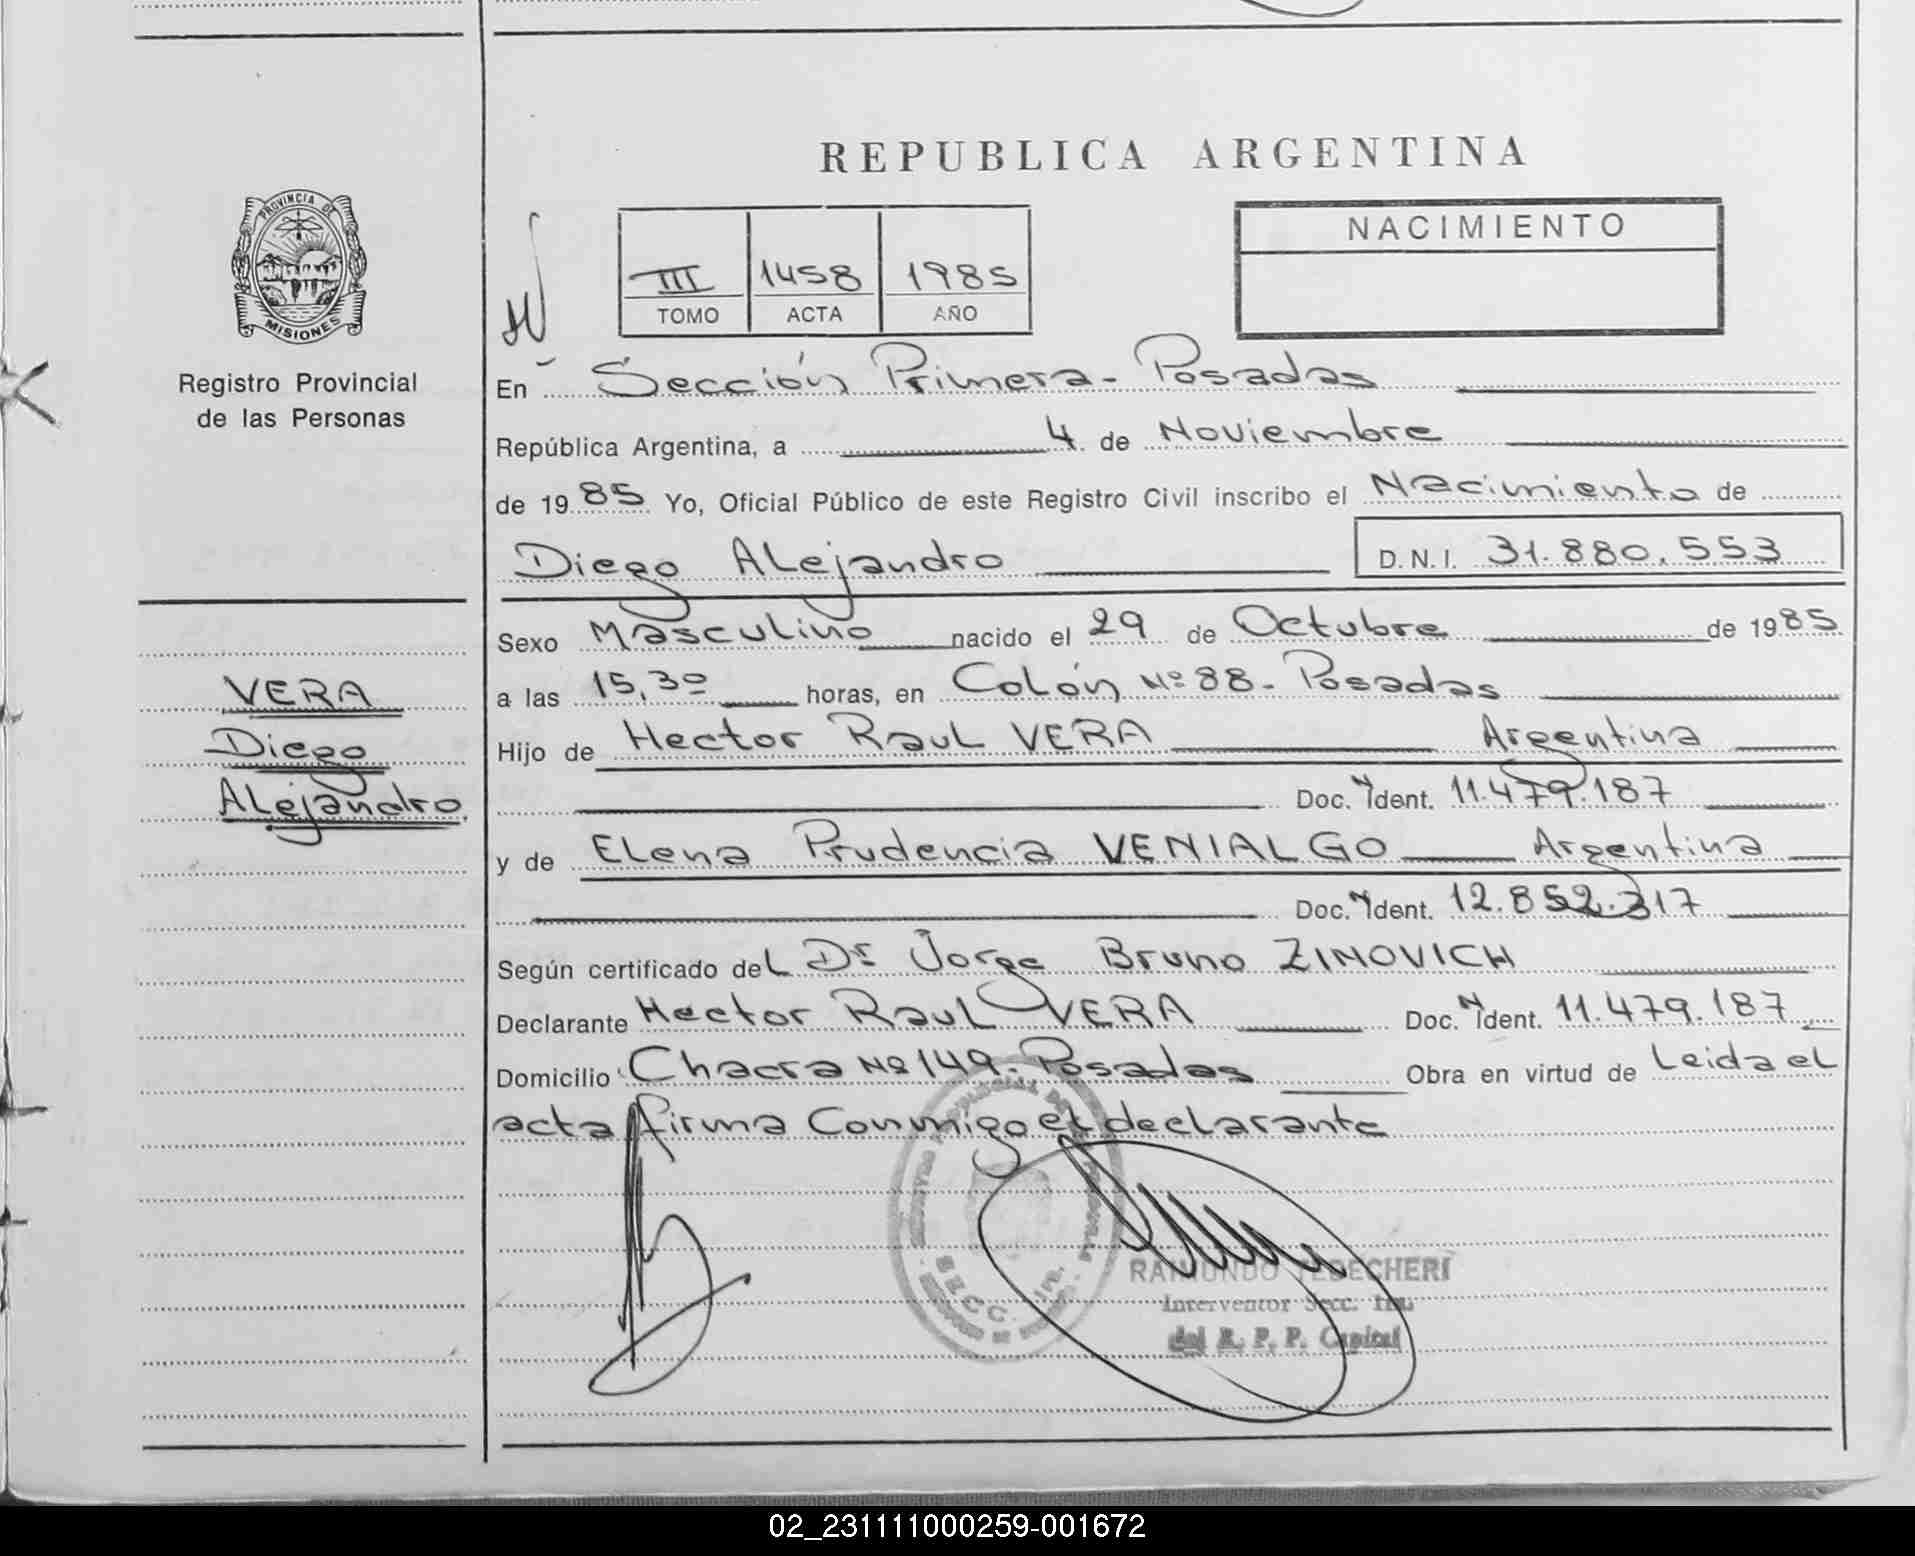 REPUBLICA ARGENTINA
PROVINCIA DE
MISIONES
Registro Provincial
de las Personas
III 1458 1985
TOMO ACTA AÑO
NACIMIENTO
En Sección Primera - Posadas
República Argentina, a 4 de Noviembre
de 1985 Yo, Oficial Público de este Registro Civil inscribo el Nacimiento de
Diego Alejandro D.N.I. 31.880.553
Sexo Masculino nacido el 29 de Octubre de 1985
a las 15,30 horas, en Colón Nº 88 - Posadas
Hijo de Hector Raul VERA Argentina
Doc. N Ident. 11.479.187
y de Elena Prudencia VENIALGO Argentina
Doc. N Ident. 12.852.317
Según certificado del Dr Jorge Bruno ZINOVICH
Declarante Hector Raul VERA Doc. N Ident. 11.479.187
Domicilio Chacra Nº 149 - Posadas Obra en virtud de Leida el
acta firma Conmigo el declarante
VERA
Diego
Alejandro
SECC. 1ra.
RAIMUNDO TEDECHERI
Interventor Secc. 1ra
del R. P. P. Capital
02_231111000259-001672